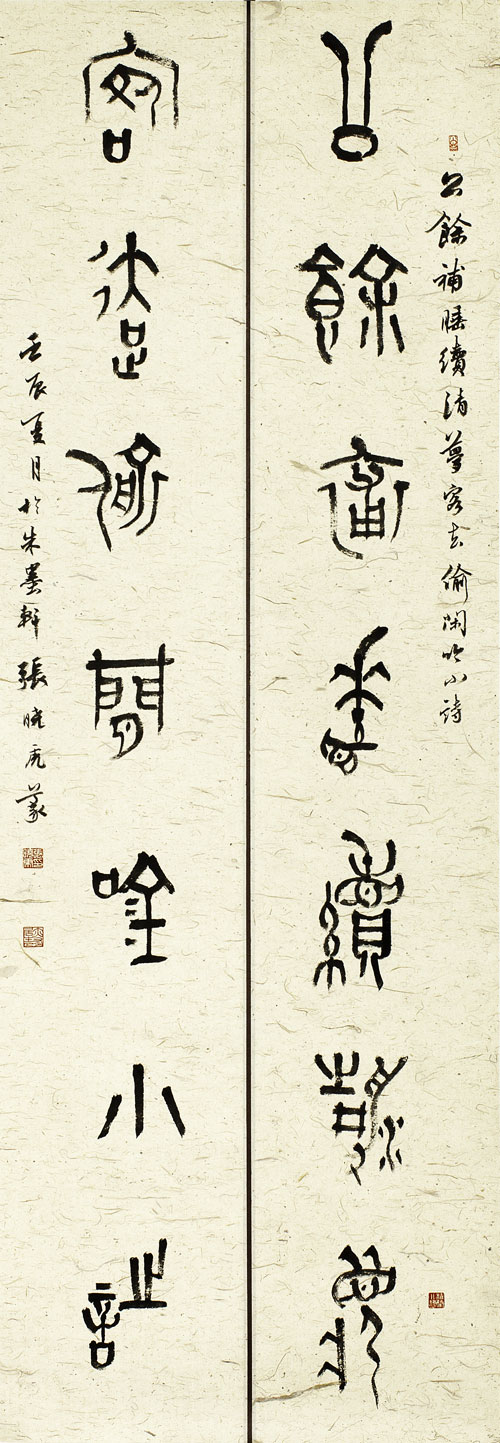 公餘補睡續清夢客去偷閑吟小詩
公餘補睡續清夢
客去偷閒吟小詩
壬辰夏月於朱墨軒張曉虎篆